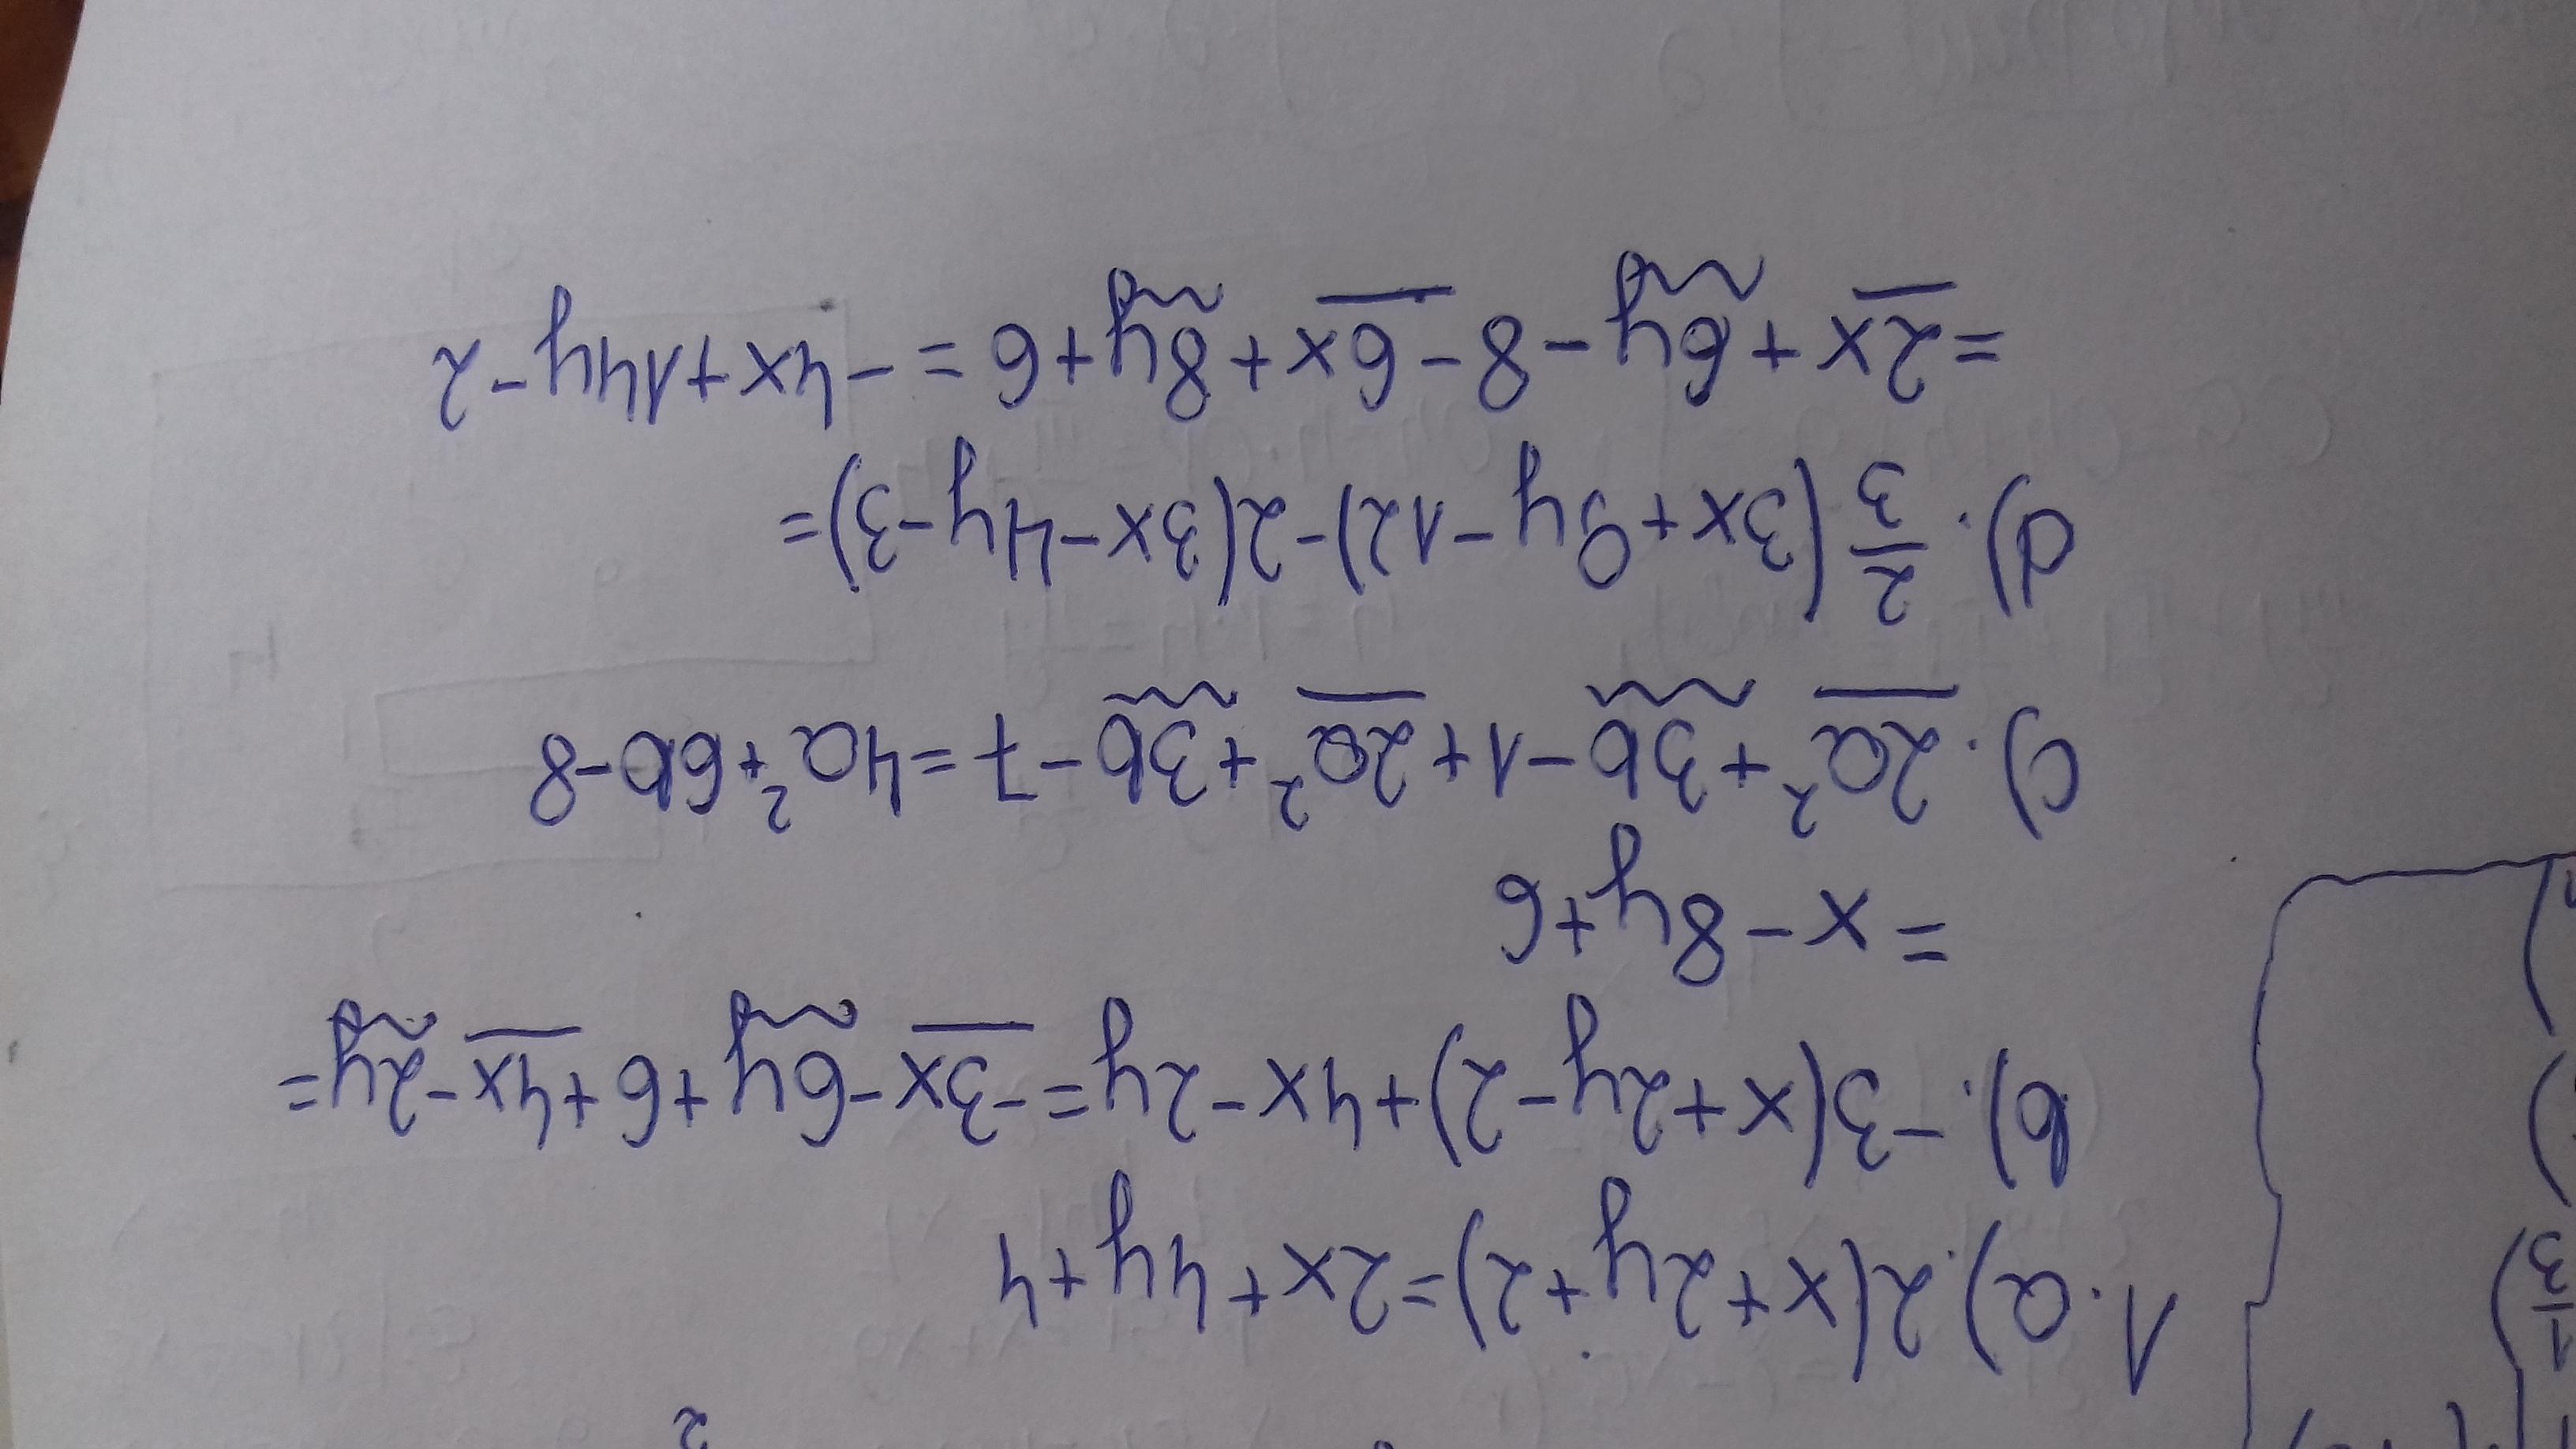 1. a). 2(x+2y+2)=2x+4y+4
b). -3(x+2y-2)+4x-2y=-3x-6y+6+4x-2y=
=x-8y+6
c). 2a²+3b-1+2a²+3b-7=4a²+6b-8
d). 2/3(3x+9y-12)-2(3x-4y-3)=
=2x+6y-8-6x+8y+6=-4x+14y-2